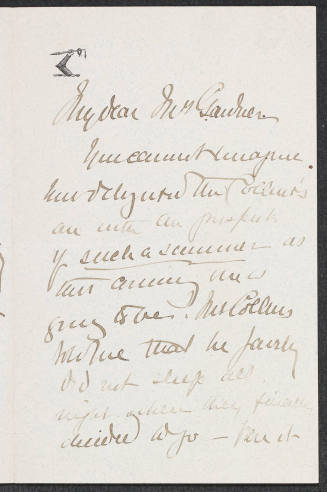 My dear Mrs Gardner
You cannot imagine
how delighted the Collins's
are with the prospect
of such a summer as
this coming one is
going to be. Mr Collins
told me that he fairly
did not sleep all
night when they finally
decided to go —